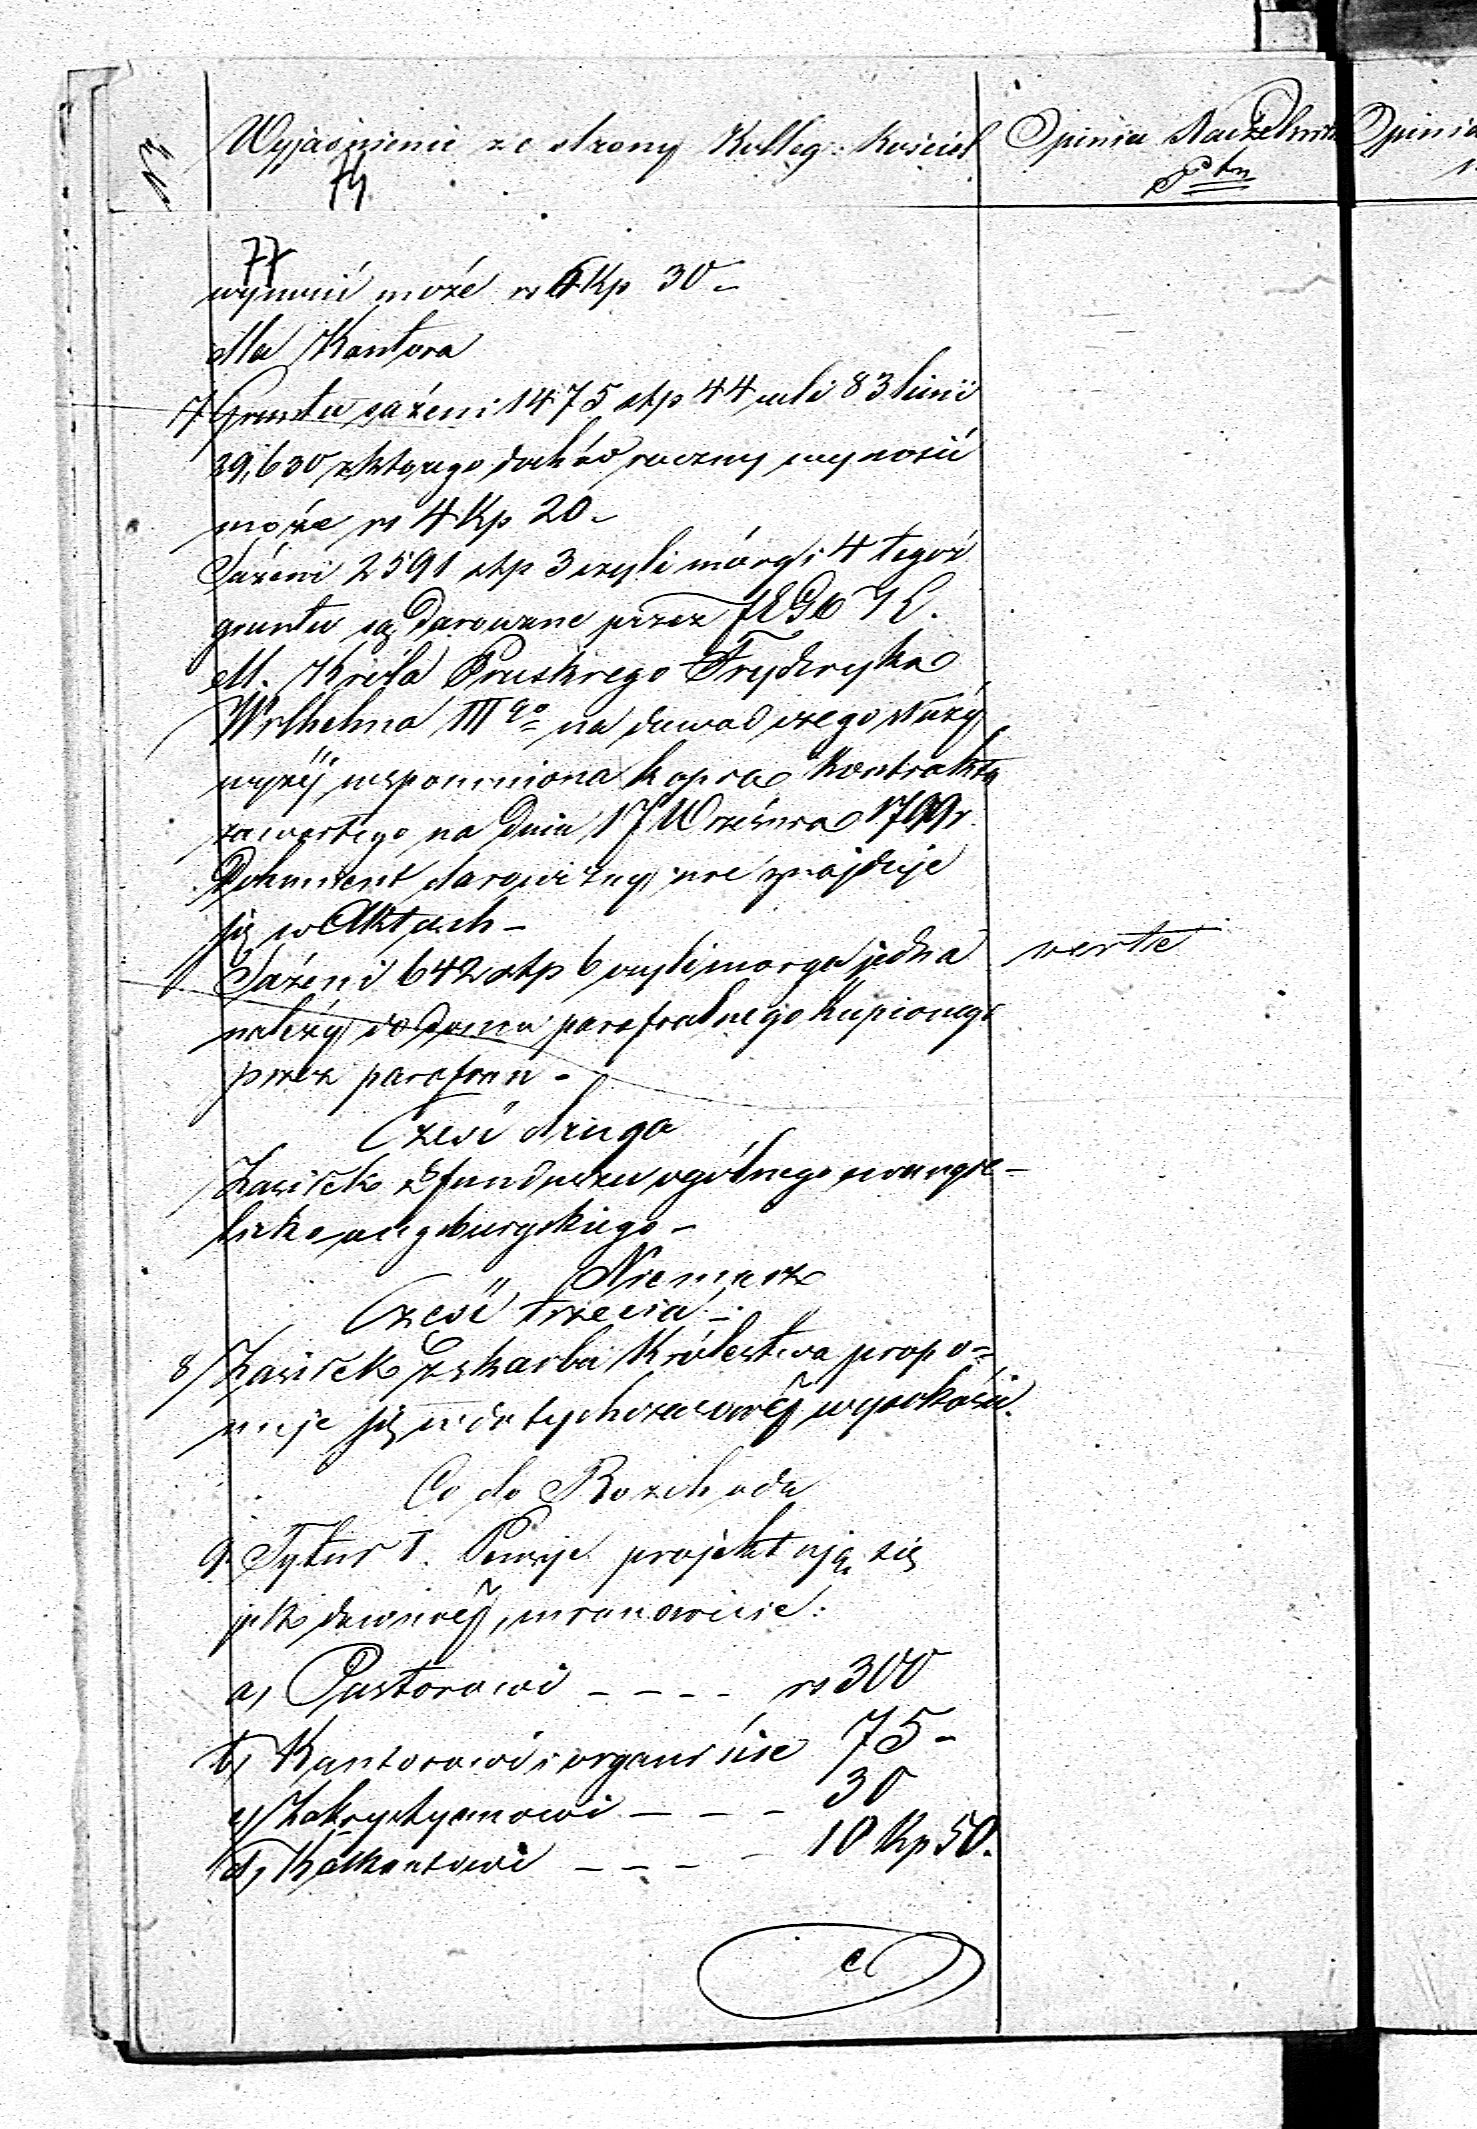 Wyjaśnienie ze strony Kolleg: Kościel
Opinia Naczelnika
Ptu
Opinia
77
wynosić może rs 6 Kp 30 –
dla Kantora
7/ Gruntu sążeni 1475 stp 44 cali 83 linii
39,630 z którego dochód roczny wynosić
może rs 4 Kp 20 –
Sążeni 2591 stp 3 czyli mórg 4 tegoż
gruntu są darowane przez JEGO
M. Króla Pruskiego Fryderyka
Wilhelma III go na dowod czego służy
wyżéj wspomniona kopia Kontraktu
zawartego na dniu 17 Września 1799 r.
Dokument darowizny nie znajduje
się w Aktach –
Sążeni 642 stp 6 czyli morga jedna
verte
należy do domu parafialnego kupionego
przez parafian –
Część druga
Zasiłek z funduszu ogólnego ewangie–
licko augsburgskiego –
Niemasz
Część trzecia –
8/ Zasiłek z skarbu Królestwa propo=
nuje się w dotychczasowéj wysokości.
Co do Rozchodu
9. Tytuł I. Pensje projektują się
jak dawniéj, mianowicie:
a, Pastorowi – – – – rs 300
b, Kantorowi i organiście 75 –
c, Zakrystyanowi – – – 30
d, Kalkantowi – – – – 10 Kp 50.